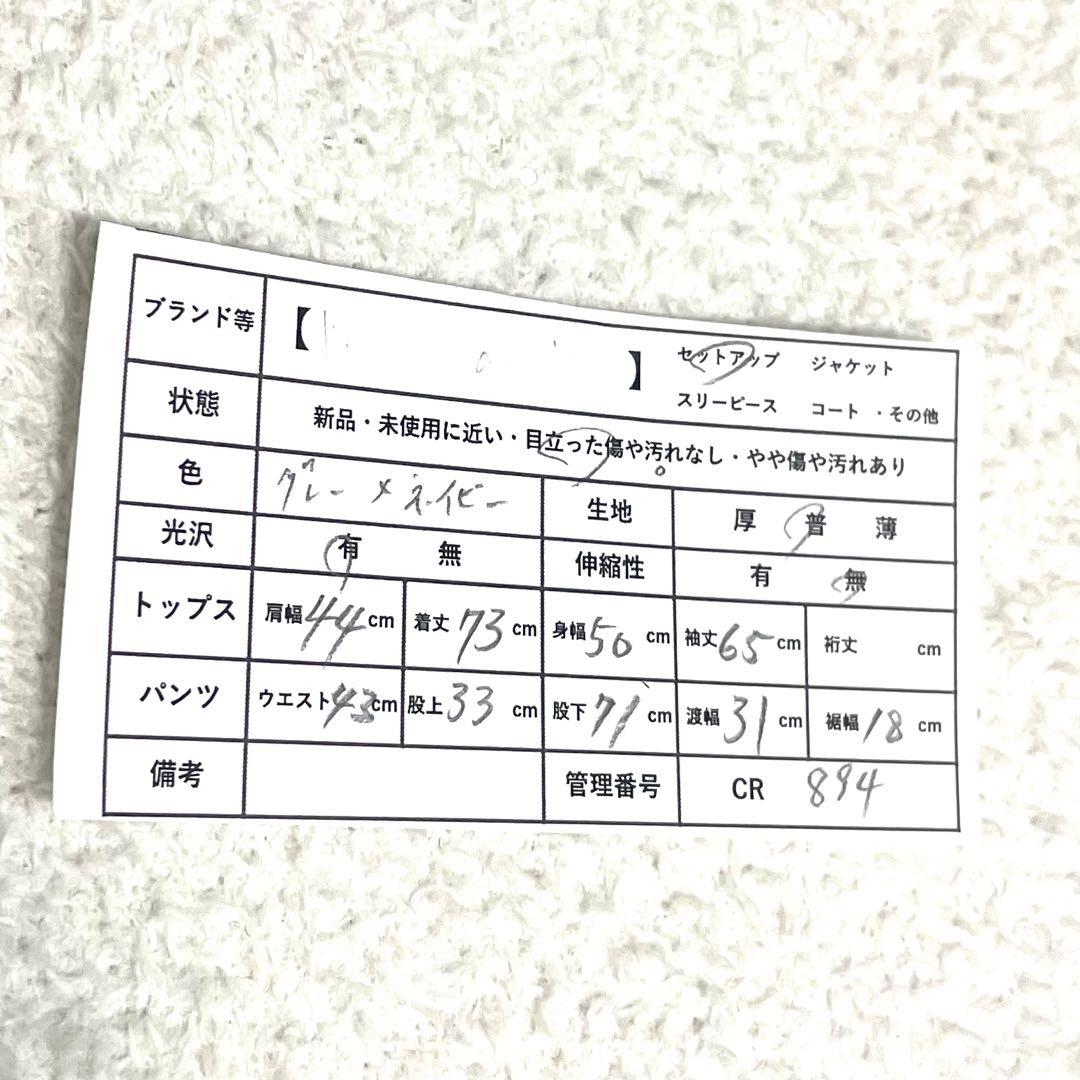 ブランド等 【 】 セットアップ ジャケット
スリーピース コート ・その他
状態 新品・未使用に近い・目立った傷や汚れなし・やや傷や汚れあり
色 グレー×ネイビー 生地 厚 普 薄
光沢 有 無 伸縮性 有 無
トップス 肩幅44cm 着丈73cm 身幅50cm 袖丈65cm 裄丈 cm
パンツ ウエスト43cm 股上33cm 股下71cm 渡幅31cm 裾幅18cm
備考 管理番号 CR 894